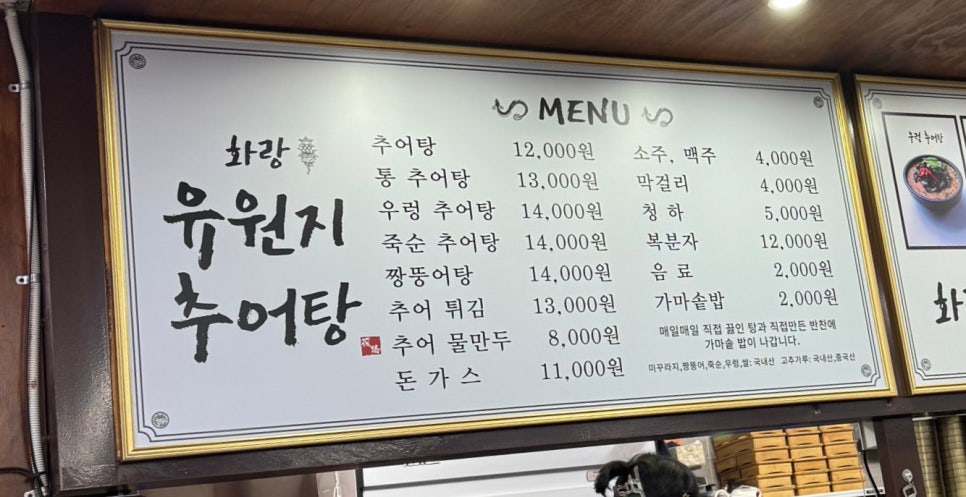 MENU
화랑
유원지
추어탕
추어탕 12,000원
통 추어탕 13,000원
우렁 추어탕 14,000원
죽순 추어탕 14,000원
짱뚱어탕 14,000원
추어 튀김 13,000원
추어 물만두 8,000원
돈가스 11,000원
소주, 맥주 4,000원
막걸리 4,000원
청하 5,000원
복분자 12,000원
음료 2,000원
가마솥밥 2,000원
매일매일 직접 끓인 탕과 직접만든 반찬에
가마솥 밥이 나갑니다.
미꾸라지,짱뚱어,죽순,우렁,쌀: 국내산 고추가루: 국내산,중국산
우렁 추어탕
화